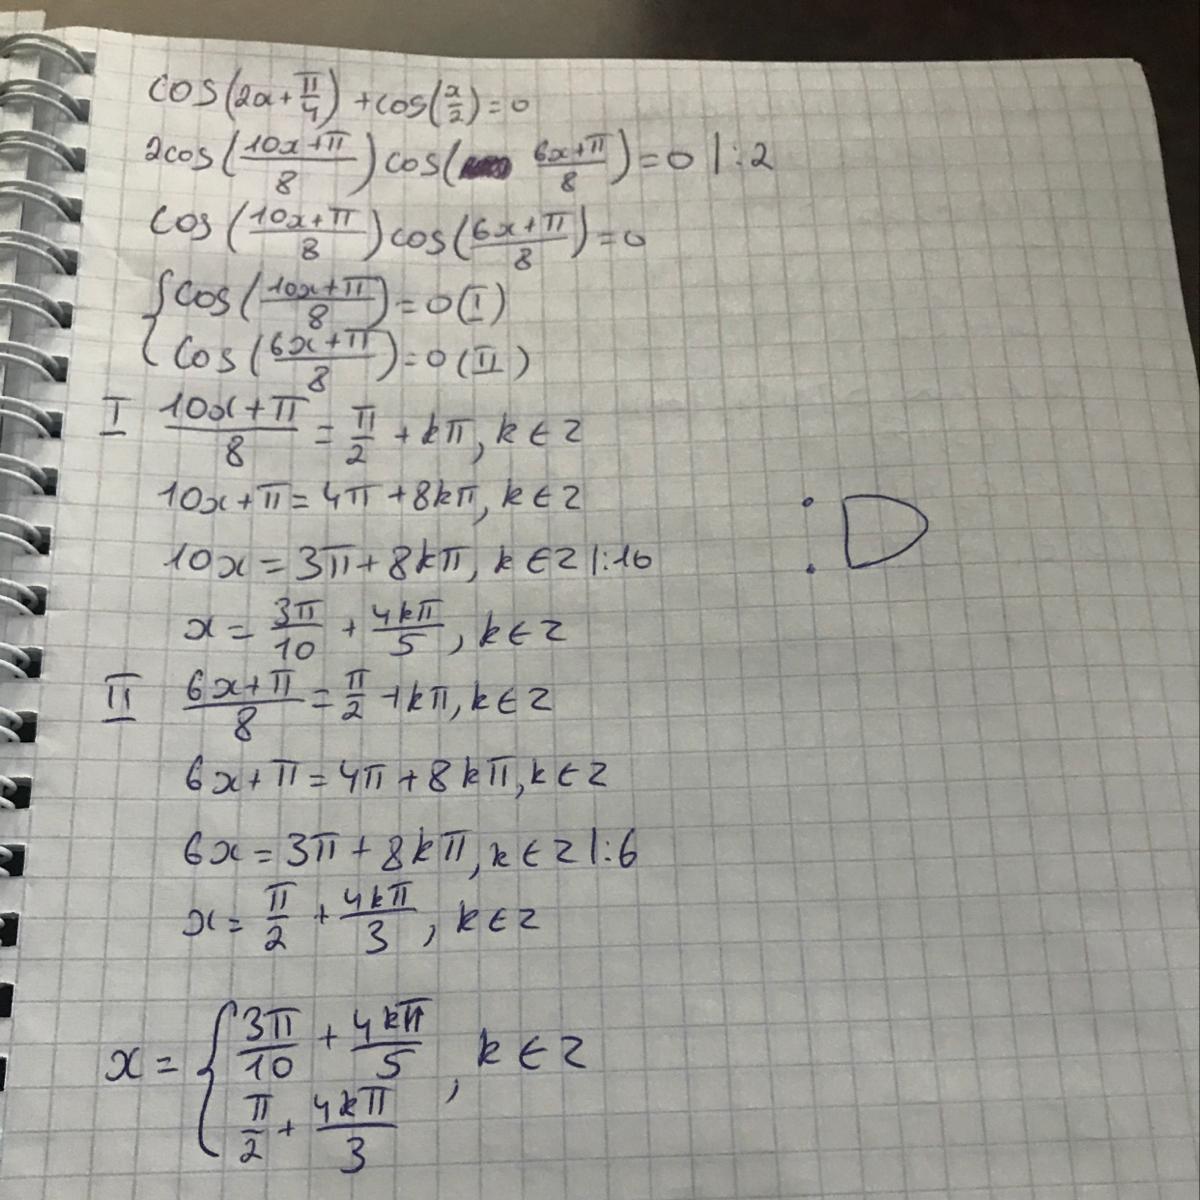 cos(2x+π/4)+cos(x/2)=0
2cos((10x+π)/8)cos((6x+π)/8)=0 |:2
cos((10x+π)/8)cos((6x+π)/8)=0
{cos((10x+π)/8)=0 (I)
cos((6x+π)/8)=0 (II)
I (10x+π)/8=π/2+kπ, k∈Z
10x+π=4π+8kπ, k∈Z
10x=3π+8kπ, k∈Z |:10
x=3π/10+4kπ/5, k∈Z
II (6x+π)/8=π/2+kπ, k∈Z
6x+π=4π+8kπ, k∈Z
6x=3π+8kπ, k∈Z |:6
x=π/2+4kπ/3, k∈Z
x={3π/10+4kπ/5
π/2+4kπ/3 , k∈Z
:D